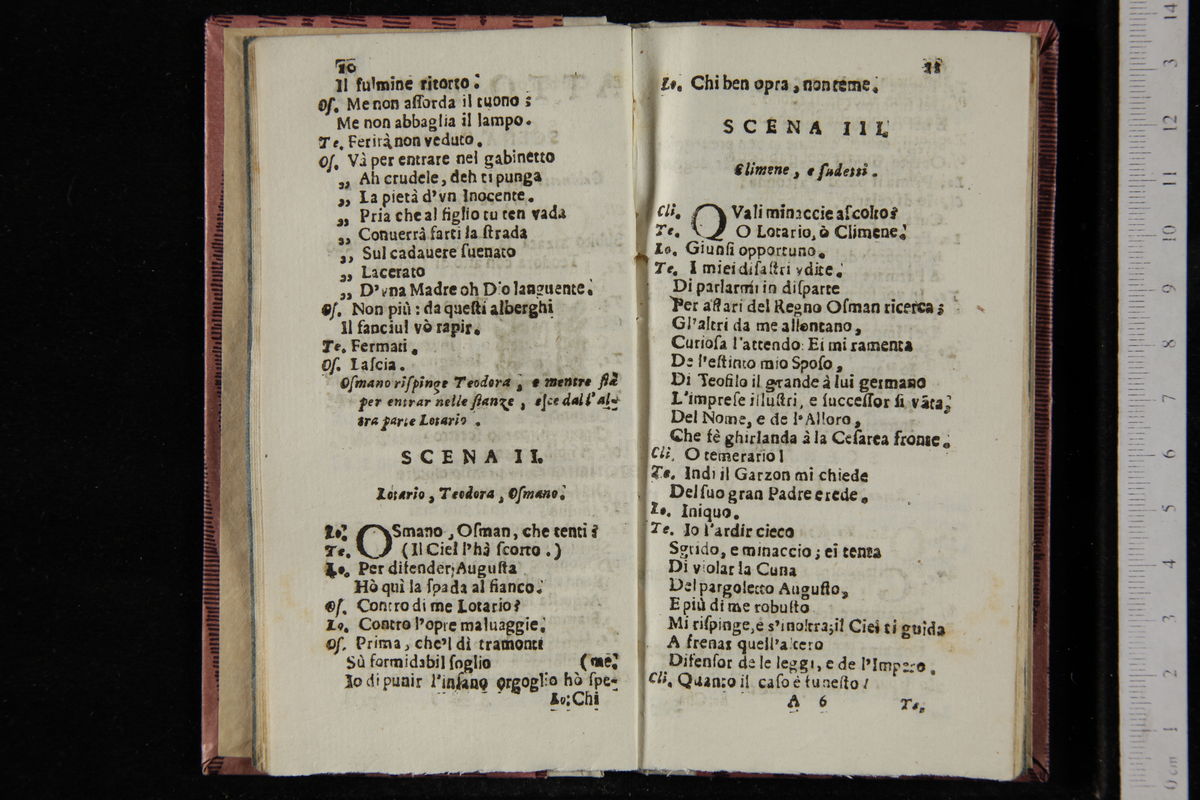 10
Il fulmine ritorto.
Oſ. Me non aſſorda il tuono;
Me non abbaglia il lampo.
Te. Ferirà non veduto.
Oſ. Và per entrare nel gabinetto
„ Ah crudele, deh ti punga
„ La pietà d'vn Inocente.
„ Pria che al figlio tu ten vada
„ Conuerrà farti la ſtrada
„ Sul cadauere ſuenato
„ Lacerato
„ D'vna Madre oh Dio languente.
Oſ. Non più: da queſti alberghi
Il fanciul vò rapir.
Te. Fermati.
Oſ. Laſcia.
Oſmano riſpinge Teodora, e mentre ſtà
per entrar nelle ſtanze, eſce dall'al-
tra parte Lotario.
SCENA II.
Lotario, Teodora, Oſmano.
Lo. OSmano, Oſman, che tenti?
Te. (Il Ciel l'hà ſcorto.)
Lo. Per difender Auguſta
Hò quì la ſpada al fianco.
Oſ. Contro di me Lotario?
Lo. Contro l'opre maluaggie.
Oſ. Prima, che'l dì tramonti
Sù formidabil ſoglio (me.
Io di punir l'inſano orgoglio hò ſpe-
Lo: Chi
11
Lo. Chi ben opra, non teme.
SCENA III.
Climene, e ſudetti.
Cli. QVali minaccie aſcolto?
Te. O Lotario, ò Climene.
Lo. Giunſi opportuno.
Te. I miei diſaſtri vdite.
Di parlarmi in diſparte
Per affari del Regno Oſman ricerca;
Gl'altri da me allontano,
Curioſa l'attendo: Ei mi ramenta
De l'eſtinto mio Spoſo,
Di Teofilo il grande à lui germano
L'impreſe illuſtri, e ſucceſſor ſi vāta,
Del Nome, e de l'Alloro,
Che fè ghirlanda à la Ceſarea fronte.
Cli. O temerario!
Te. Indi il Garzon mi chiede
Del ſuo gran Padre erede.
Lo. Iniquo.
Te. Io l'ardir cieco
Sgrido, e minaccio; ei tenta
Di violar la Cuna
Del pargoletto Auguſto,
E più di me robuſto
Mi riſpinge, e s'inoltra; il Ciel ti guida
A frenar quell'altero
Difenſor de le leggi, e de l'Impero.
Cli. Quanto il caſo è funeſto!
A 6 Te.